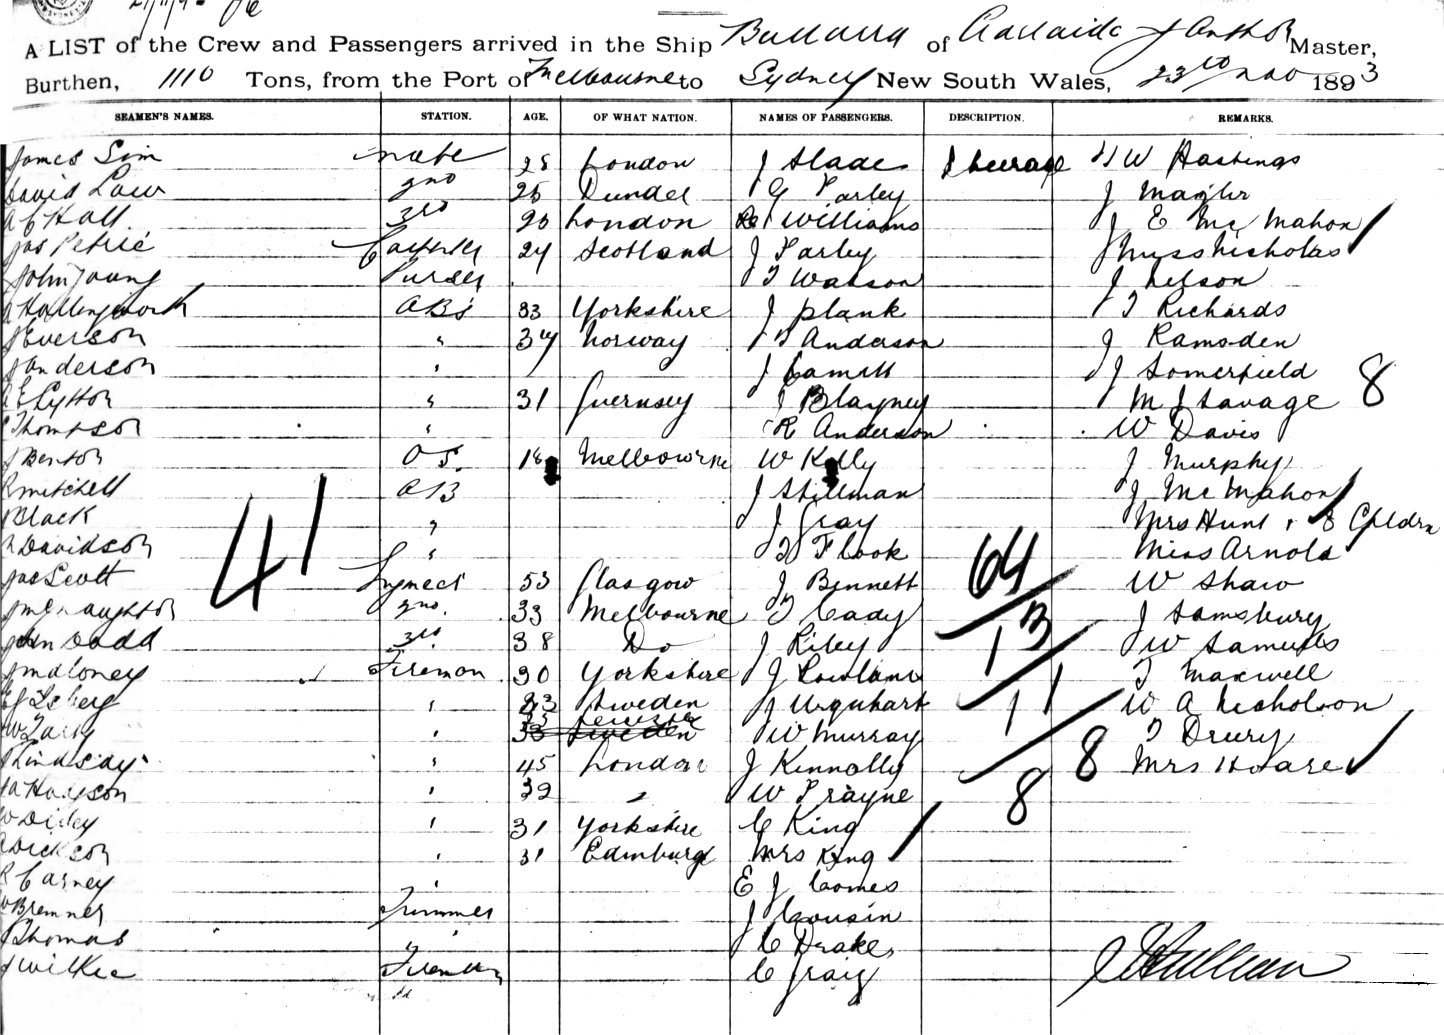 A LIST of the Crew and Passengers arrived in the Ship Burrumba of Adelaide J Master,
Burthen, 1110 Tons, from the Port of Melbourne to Sydney New South Wales, 23rd Nov 1893
SEAMEN'S NAMES. STATION. AGE. OF WHAT NATION. NAMES OF PASSENGERS. DESCRIPTION. REMARKS.
James Sim mate 28 London J Slade Steerage W Hastings
David Law 2nd 25 Dundee G Farley J
A C Hall 3rd London Williams J E McMahon
Jas Petrie 24 Scotland J Farley Miss Nicholas
John Young Purser T Watson J Nelson
A Hollingworth ABs 33 Yorkshire J Plank T Richards
J Everson " 34 Norway T Anderson J Ramsden
J Anderson " J J Somerfield 8
Lytton " 31 Guernsey J Blayney M J Savage
C Thompson " R Anderson W Davis
J Benton OS. 18 Melbourne W Kelly J Murphy
R Mitchell AB J Stillman J McMahon
Black " J Gray Mrs Hunt + 8 Chldrn
41
A Davidson " T Flook Miss Arnold
Jas Scott 53 Glasgow J Bennett 64 W Shaw
J McNaughton 2nd. 33 Melbourne T Cady J Samsbury
John Dodd 3rd 38 Do J Riley 13 W Samuels
J Maloney Fireman 30 Yorkshire J Rowland T Maxwell
" Sweden J Urquhart 11 W A Nicholson
" W Murray T Drury
Lindsay " 45 London J Kennolly 8 Mrs Hoare
" 39 " W Frayne 8
" 31 Yorkshire C King
Dickson " 31 Edinburgh Mrs King
R Carney " E J Comes
W Bremner Trimmer J Cousin
Thomas " C Drake
J Wilkie Fireman C Craig